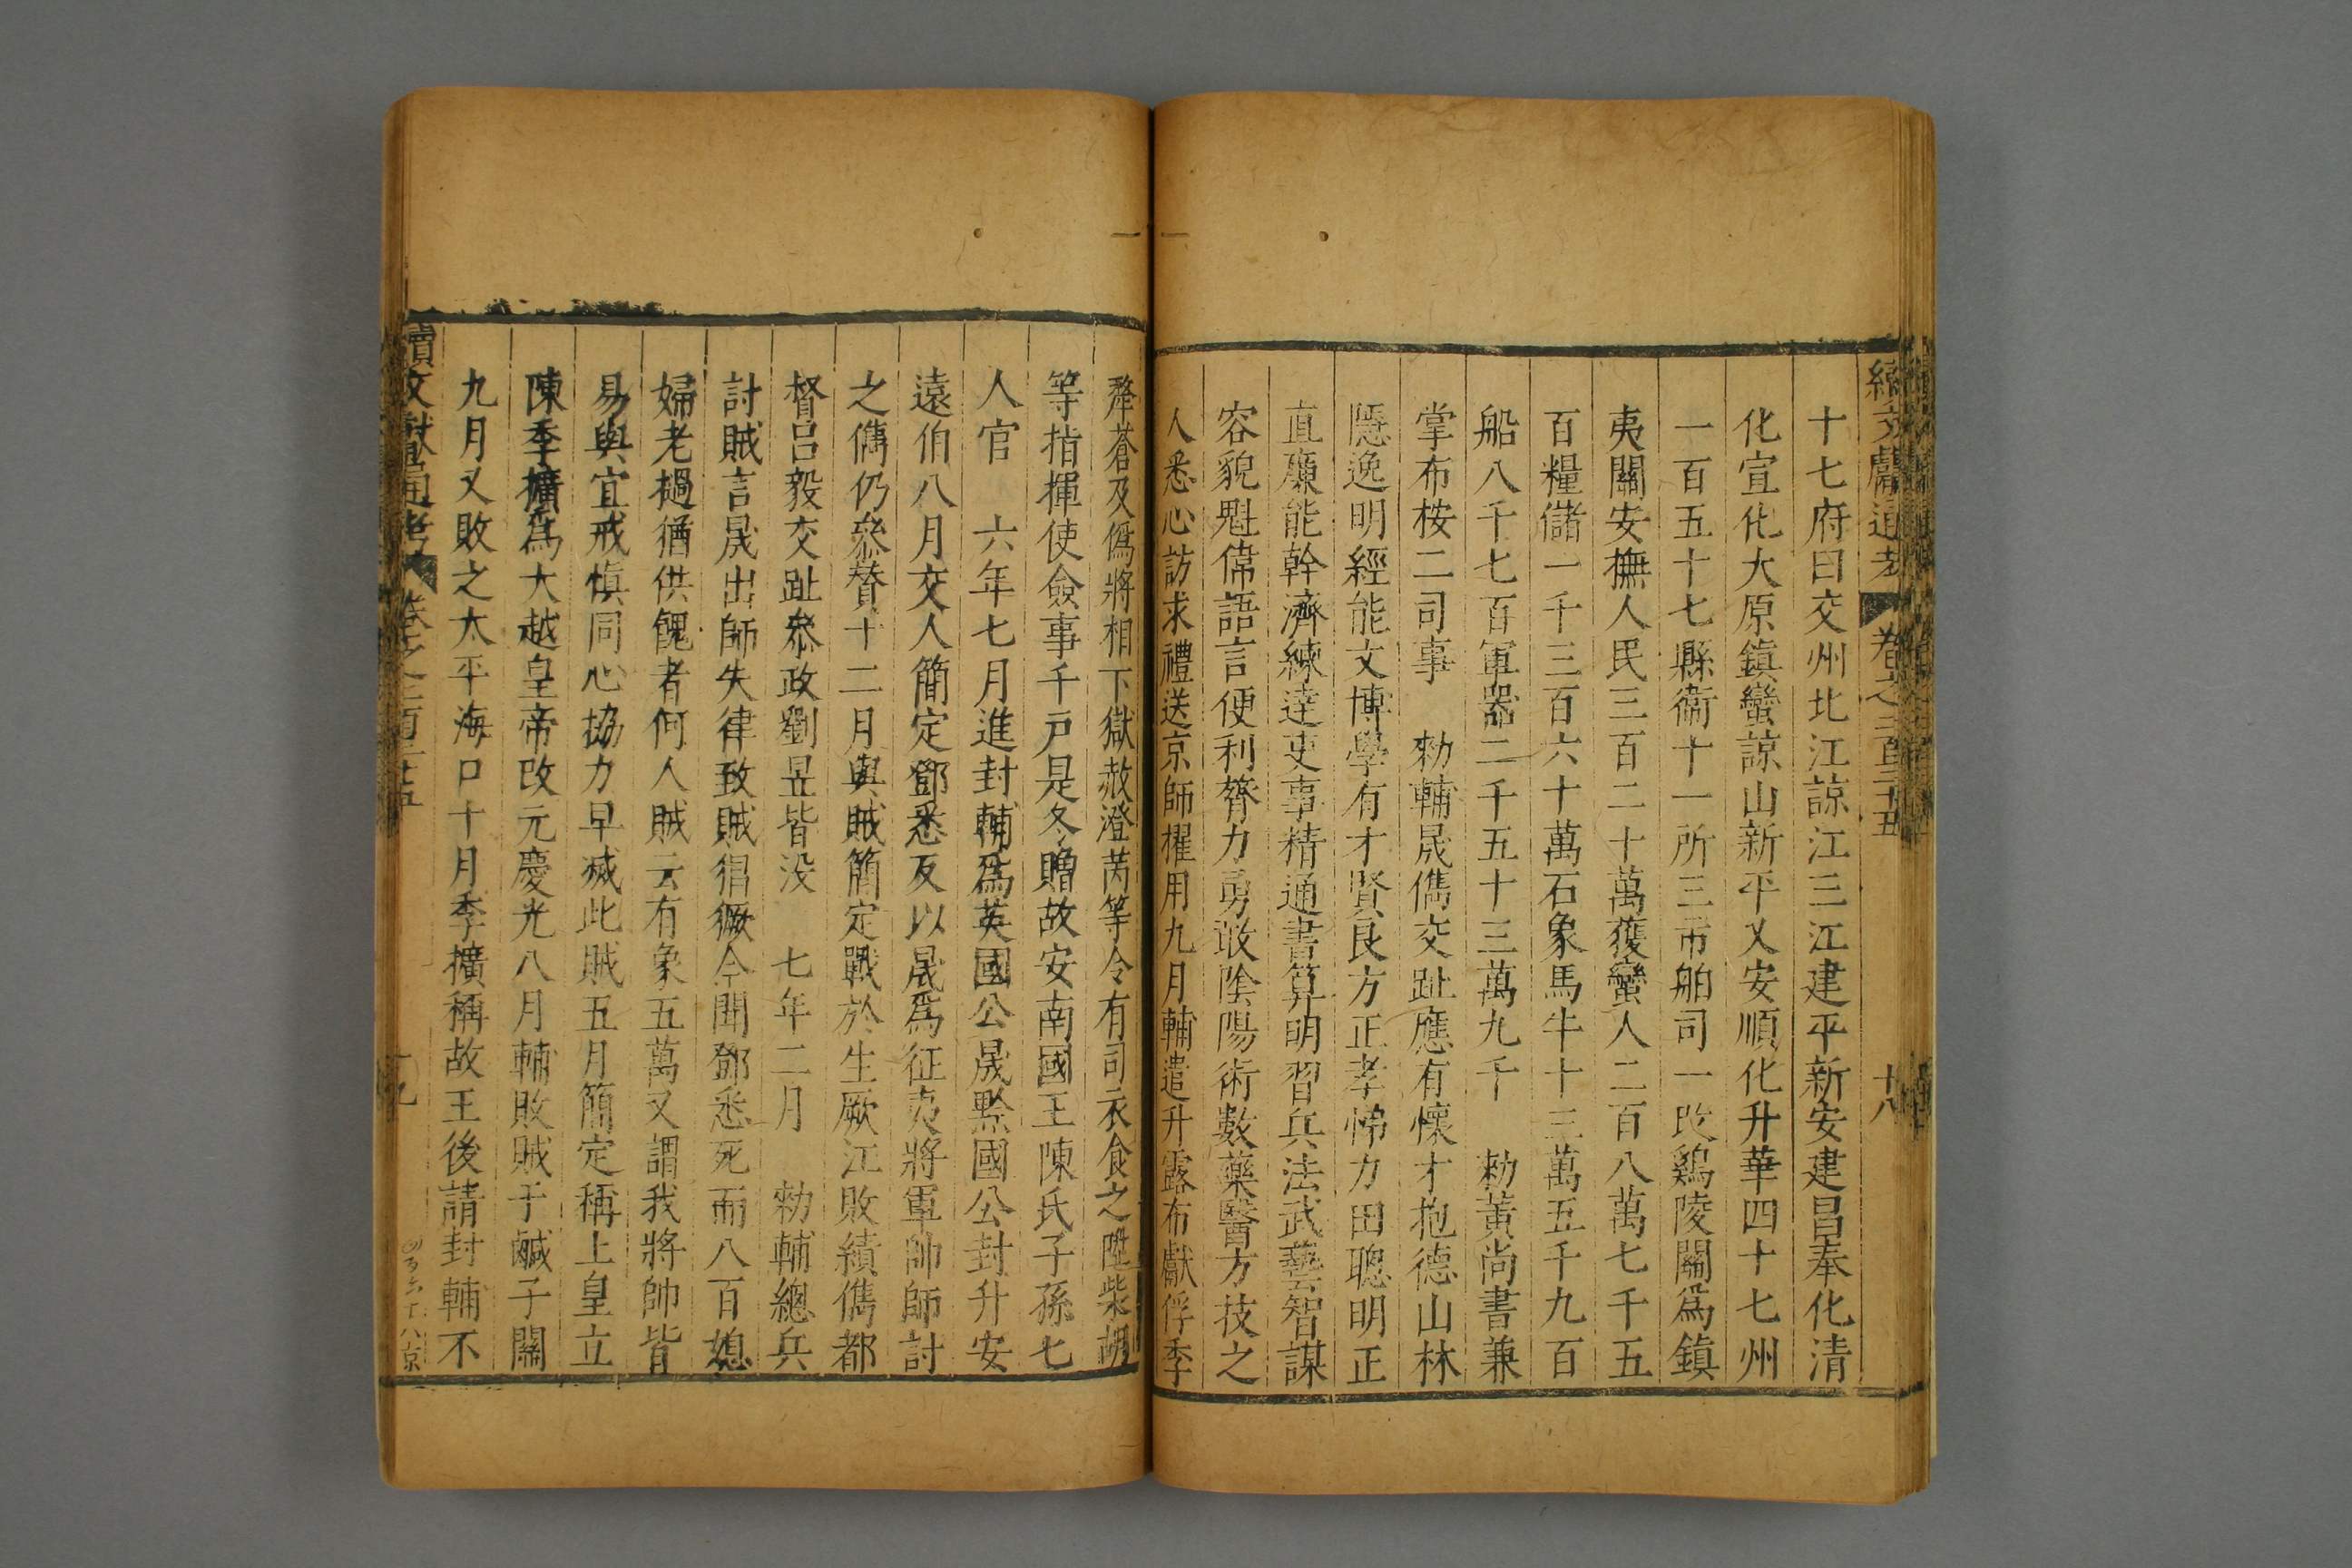 續文獻通考 卷之二百三十五 十八
十七府曰交州北江諒江三江建平新安建昌奉化清
化宣化大原鎮蠻諒山新平乂安順化升華四十七州
一百五十七縣衛十一所三市舶司一改鷄陵關爲鎮
夷關安撫人民三百二十萬獲蠻人二百八萬七千五
百糧儲一千三百六十萬石象馬牛十三萬五千九百
船八千七百軍器二千五十三萬九千 勑黃尚書兼
掌布桉二司事 勑輔晟儁交趾應有懷才抱德山林
隱逸明經能文博學有才賢良方正孝悌力田聰明正
直廉能幹濟練達吏事精通書算明習兵法武藝智謀
容貌魁偉語言便利膂力勇敢陰陽術數藥醫方技之
人悉心訪求禮送京師擢用九月輔遣升露布獻俘季
犛蒼及僞將相下獄赦澄芮等令有司衣食之陞柴胡
等指揮使僉事千戸是冬贈故安南國王陳氏子孫七
人官 六年七月進封輔爲英國公晟黔國公封升安
遠伯八月交人簡定鄧悉反以晟爲征夷將軍帥師討
之儁仍叅贊十二月與賊簡定戰於生厥江敗績儁都
督呂毅交趾叅政劉昱皆没 七年二月 勑輔總兵
討賊言晟出師失律致賊猖獗今聞鄧悉死而八百媳
婦老撾猶供餽者何人賊云有象五萬又謂我將帥皆
易與宜戒愼同心協力早滅此賊五月簡定稱上皇立
陳季擴爲大越皇帝改元慶光八月輔敗賊于鹹子關
九月又敗之太平海口十月季擴稱故王後請封輔不
續文獻通考 卷之二百三十五 十九